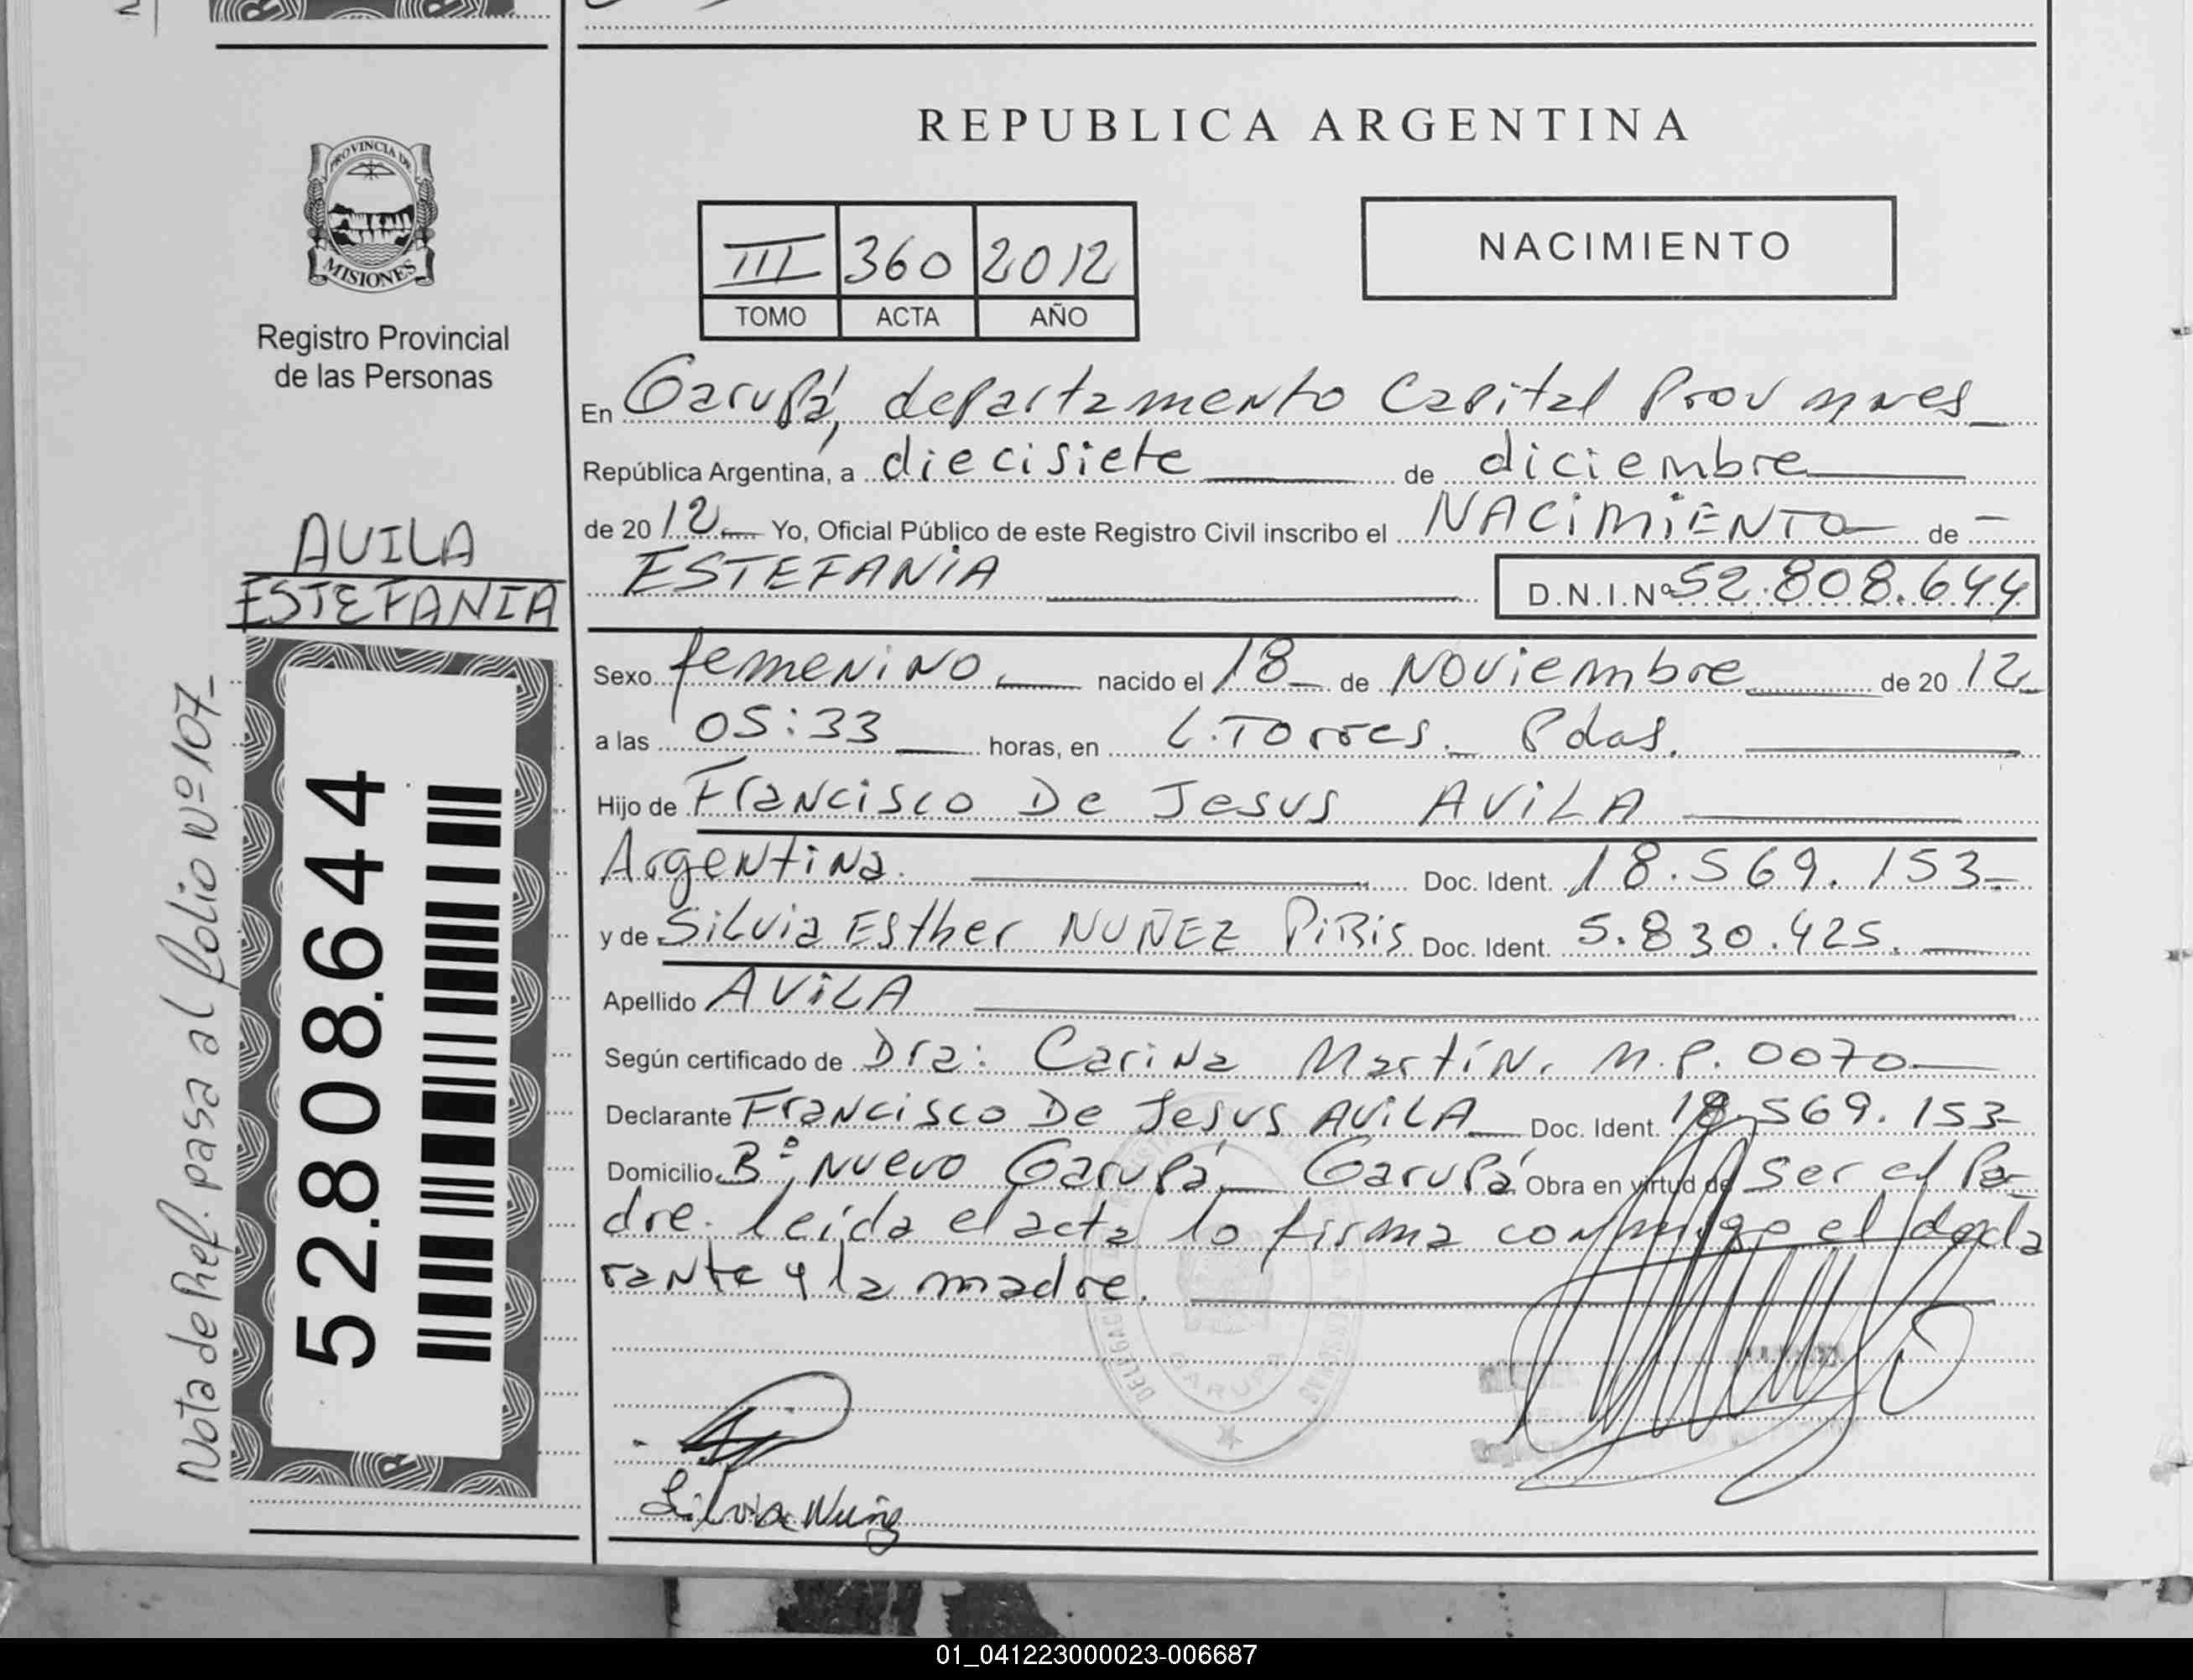 PROVINCIA DE
MISIONES
Registro Provincial
de las Personas
AVILA
ESTEFANIA
52.808.644
Nota de Ref. pasa al folio Nº 107-
REPUBLICA ARGENTINA
III 360 2012
TOMO ACTA AÑO
NACIMIENTO
En Garupá, departamento Capital Prov Mnes
República Argentina, a diecisiete de diciembre
de 2012 Yo, Oficial Público de este Registro Civil inscribo el NACIMIENTO de -
ESTEFANIA D.N.I.Nº 52.808.644
Sexo femenino nacido el 18 de Noviembre de 2012
a las 05:33 horas, en L. Torres. Pdas.
Hijo de Francisco De Jesus AVILA
Argentina. Doc. Ident. 18.569.153-
y de Silvia Esther NUÑEZ PIRIS Doc. Ident. 5.830.425.
Apellido AVILA
Según certificado de Dra: Carina Martín. M.P. 0070
Declarante Francisco De Jesus AVILA Doc. Ident. 18.569.153
Domicilio Bº Nuevo Garupá Garupá Obra en virtud de ser el Pa-
dre. leída el acta lo firma conmigo el decla
rante y la madre.
GARUPA
Silvia Nuñez
01_041223000023-006687